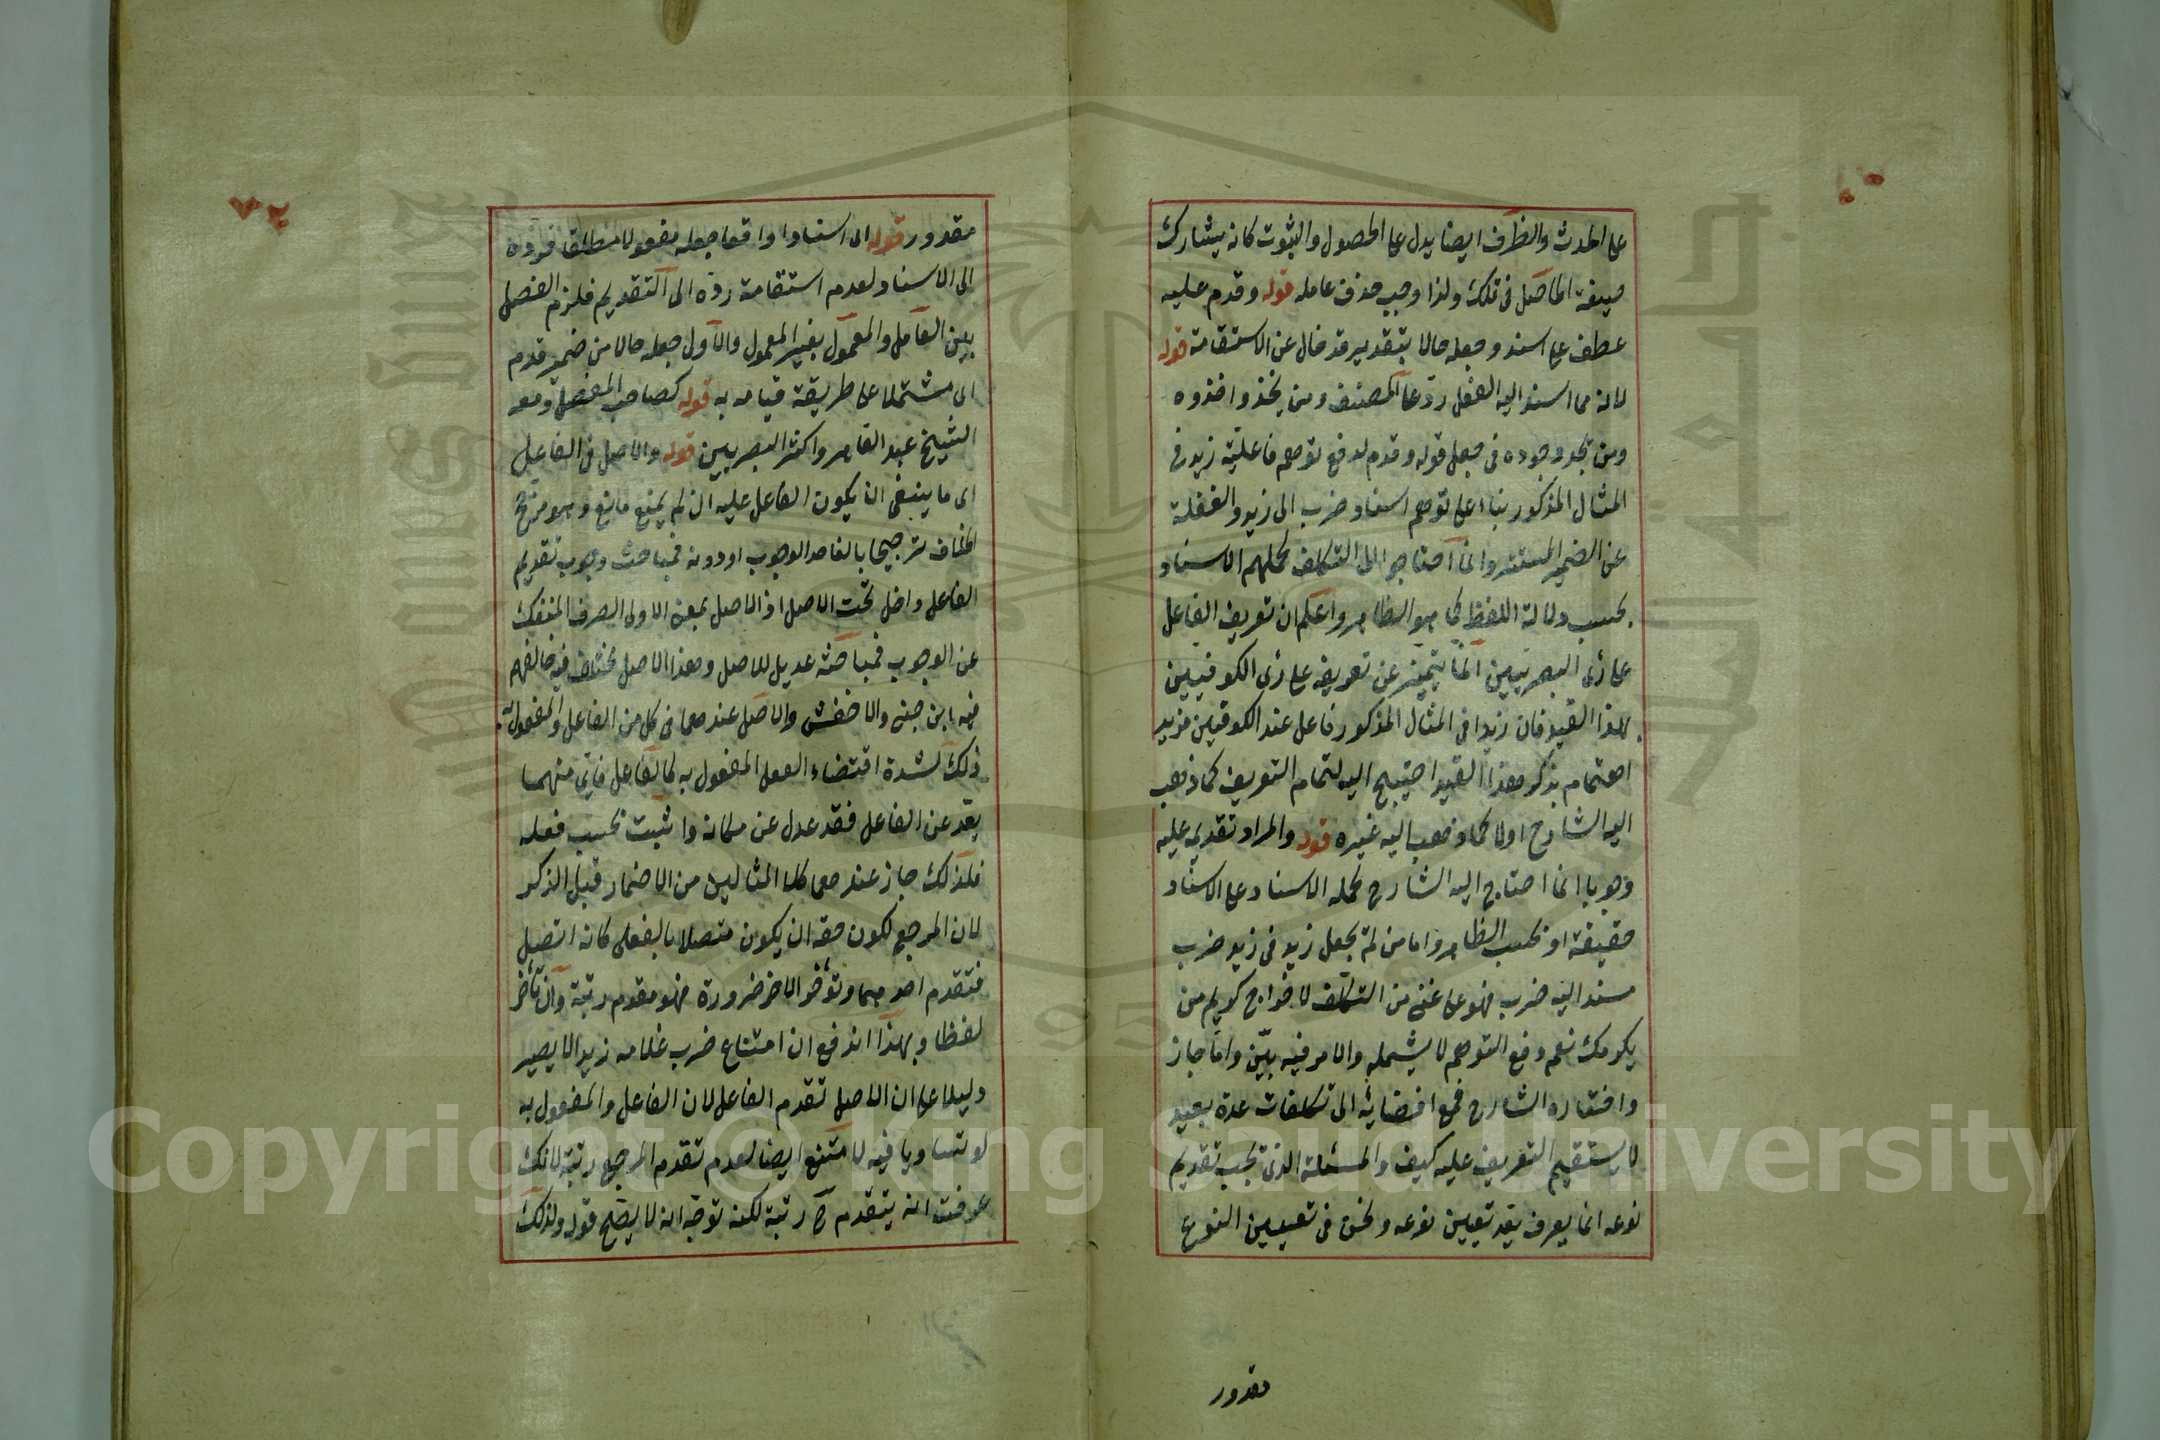 على الحدث والظرف ايضا يدل على الحصول والثبوت كانه يشارك
صيغة الحاصل في تلك ولذا وجب حذف عامله قوله وقدم عليه
عطف على اسند وجعله حالا بتقدير قد خال عن الاستقامة قوله
لانه مما اسند اليه الفعل رد على المصنف ومن يحذو حذوه
ومن في جعل قوله وقدم لدفع توهم فاعلية زيد في
المثال المذكور بناء على توهم اسناد ضرب الى زيد والغفلة
عن الضمير المستتر وانما احتاجوا الى التكلف لحملهم الاسناد
بحسب دلالة اللفظ كما هو الظاهر واعلم ان تعريف الفاعل
على رأى البصريين انما يتميز عن تعريفه على رأى الكوفيين
بهذا القيد فان زيدا في المثال المذكور فاعل عند الكوفيين فمزيد
اهتمام بذكر هذا القيد احتيج اليه لتمام التعريف كما ذهب
اليه الشارح اولا كما ذهب اليه غيره قوله والمراد تقديمه عليه
وجوبا انما احتاج اليه الشارح لحمله الاسناد على الاسناد
حقيقة او بحسب الظاهر واما من لم يجعل زيد في زيد ضرب
مسندا اليه ضرب فهو على غنى من التكلف لاخراج كريم من
يكرمك نعم دفع التوهم لا يشمله والامر فيه بين واما جاز
واختاره الشارح فمع افضائه الى تكلفات عدة بعيد
لا يستقيم التعريف عليه كيف والمسئلة الذي تحب تقديم
نوعه انما يعرف بعد تعيين نوعه ونحن في تعيين النوع
مقدور
مقدور قوله اى اسنادا واقعا جعله مفعولا مطلقا فرده
الى الاسناد لعدم استقامة رده الى التقديم فلزم الفصل
بين العامل والمعمول بغير المعمول والاول جعله حالا من ضمير قدم
اى مشتملا على طريقة قيامه به قوله كصاحب المفصل ومعه
الشيخ عبد القاهر واكثر البصريين قوله والاصل في الفاعل
اى ما ينبغى ان يكون الفاعل عليه ان لم يمنع مانع وهو مرجح
الخلاف ترجيحا بالغا حد الوجوب او دونه فمباحث وجوب تقديم
الفاعل داخل تحت الاصل اذ الاصل بمعنى الاولى الصرف المنفك
عن الوجوب فمباحثه عديل للاصل وهذا الاصل مختلف فيه خالفهم
فيه ابن جنى والاخفش والاصل عندهما في كل من الفاعل والمفعول به
ذلك لشدة اقتضاء الفعل المفعول به كالفاعل فاى منهما
بعد عن الفاعل فقد عدل عن مكانه واثبت بحسب فعله
فلذلك جاز عندهما كلا المثالين من الاضمار قبل الذكر
لان المرجع لكون حقه ان يكون متصلا بالفعل كانه اتصل
فتقدم احدهما وتوخر الاخر ضرورة فهو مقدم رتبة وان تأخر
لفظا وبهذا اندفع ان امتناع ضرب غلامه زيدا لا يصير
دليلا على ان الاصل تقدم الفاعل لان الفاعل والمفعول به
لو تساويا فيه لامتنع ايضا لعدم تقدم المرجع رتبة لانك
عرفت انه يتقدم ح رتبة لكنه توجه انه لا يصح قوله ولذلك
٧٢
Copyright © King Saud University